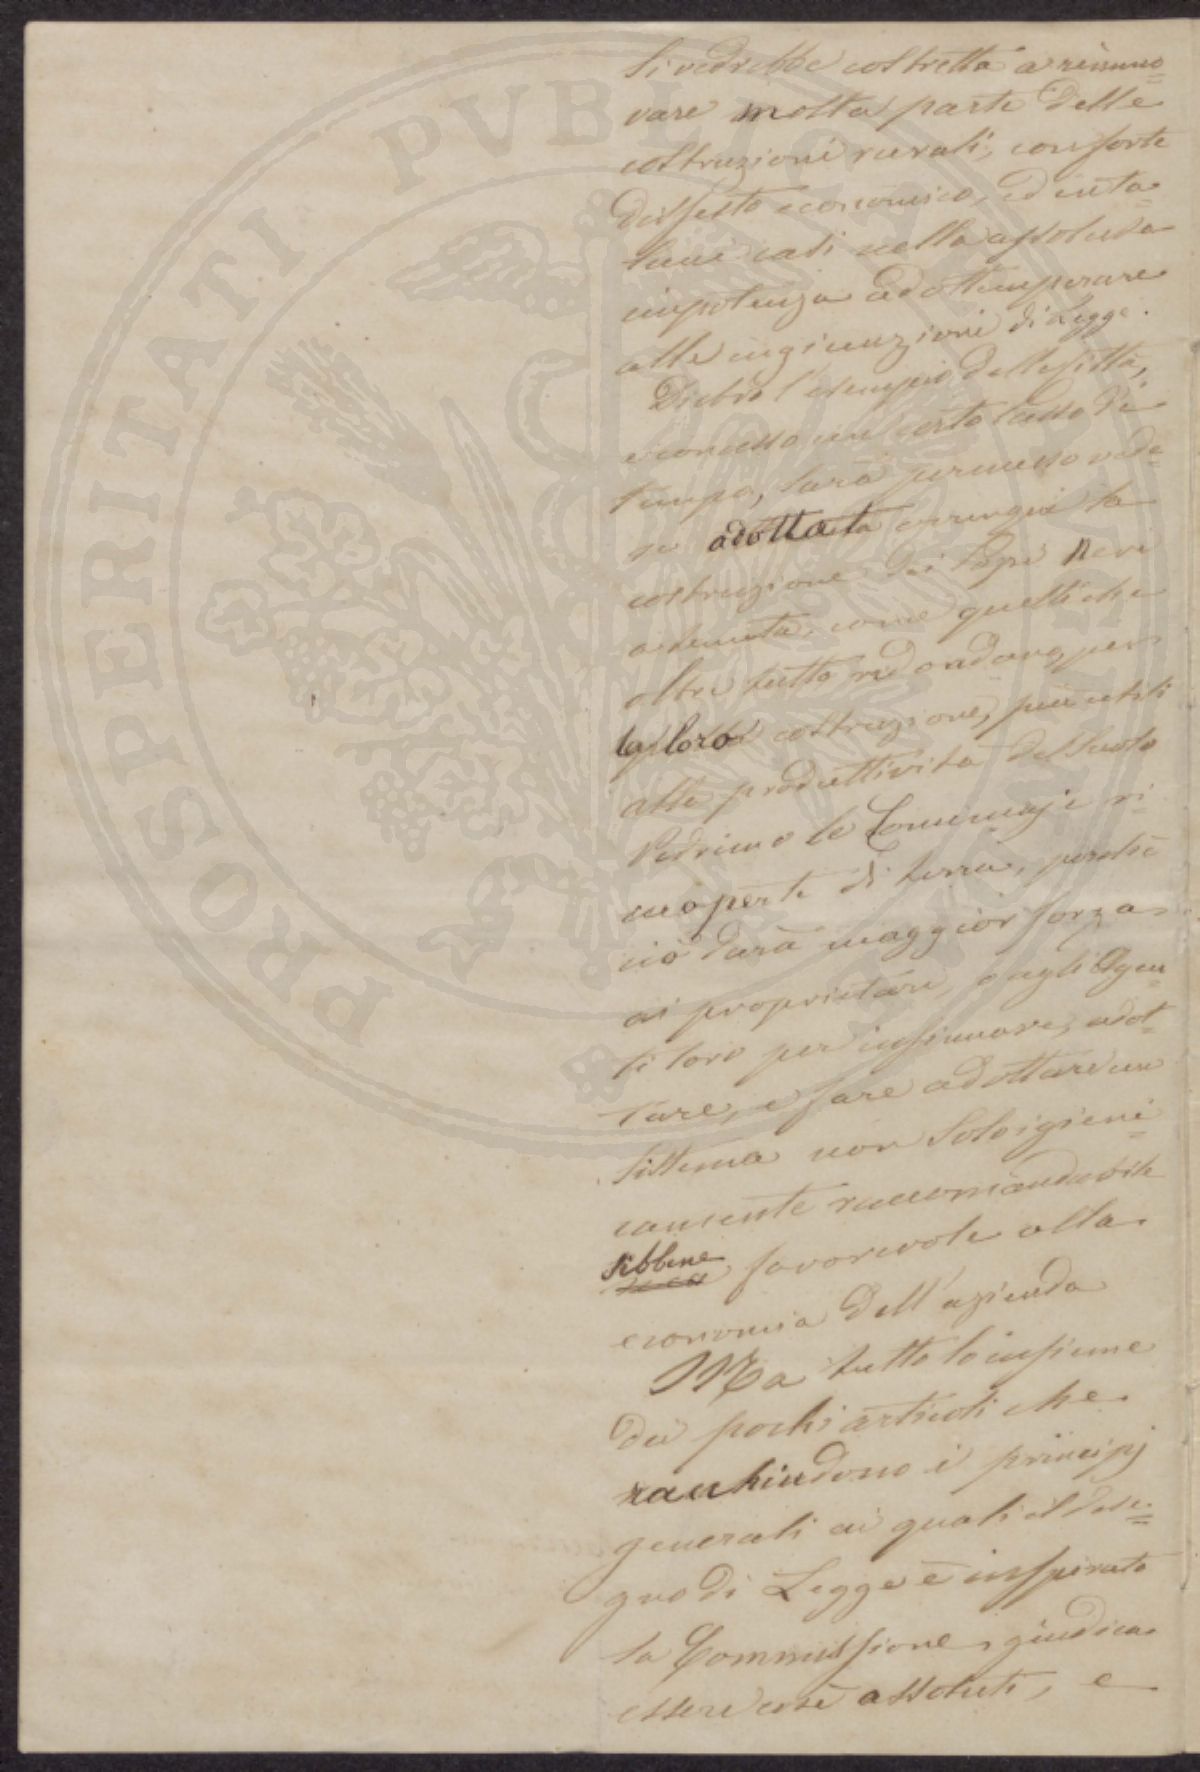 si vedrebbe costretta a rinno=
vare molta parte delle
costruzioni rurali, con forte
dissesto economico, ed in ta=
luni casi nella assoluta
impotenza ad ottemperare
alle ingiunzioni di Legge.
Dietro l'esempio delle Città,
e concesso un certo lasso di
tempo, sarà permesso vede=
re adottata ovunque la
costruzione dei Pozzi Neri
a tenuta, come quelli che
oltre tutto ridondano, per
la loro costruzione, più utili
alla produttività del suolo
Vedremo le Concimaje ri
coperte di terra, perchè
ciò darà maggior forza
ai proprietari, e agli Agen=
ti loro per insinuare, adot=
tare, e fare adottare un
sistema non solo igieni=
camente raccomandabile
sibbene favorevole alla
economia dell'azienda
Ma tutto lo insieme
dei pochi articoli che
racchiudono i principj
generali ai quali il dise=
gno di Legge è inspirato
la Commissione giudica
essere così assoluti, e
PROSPERITATI PVBLICAE